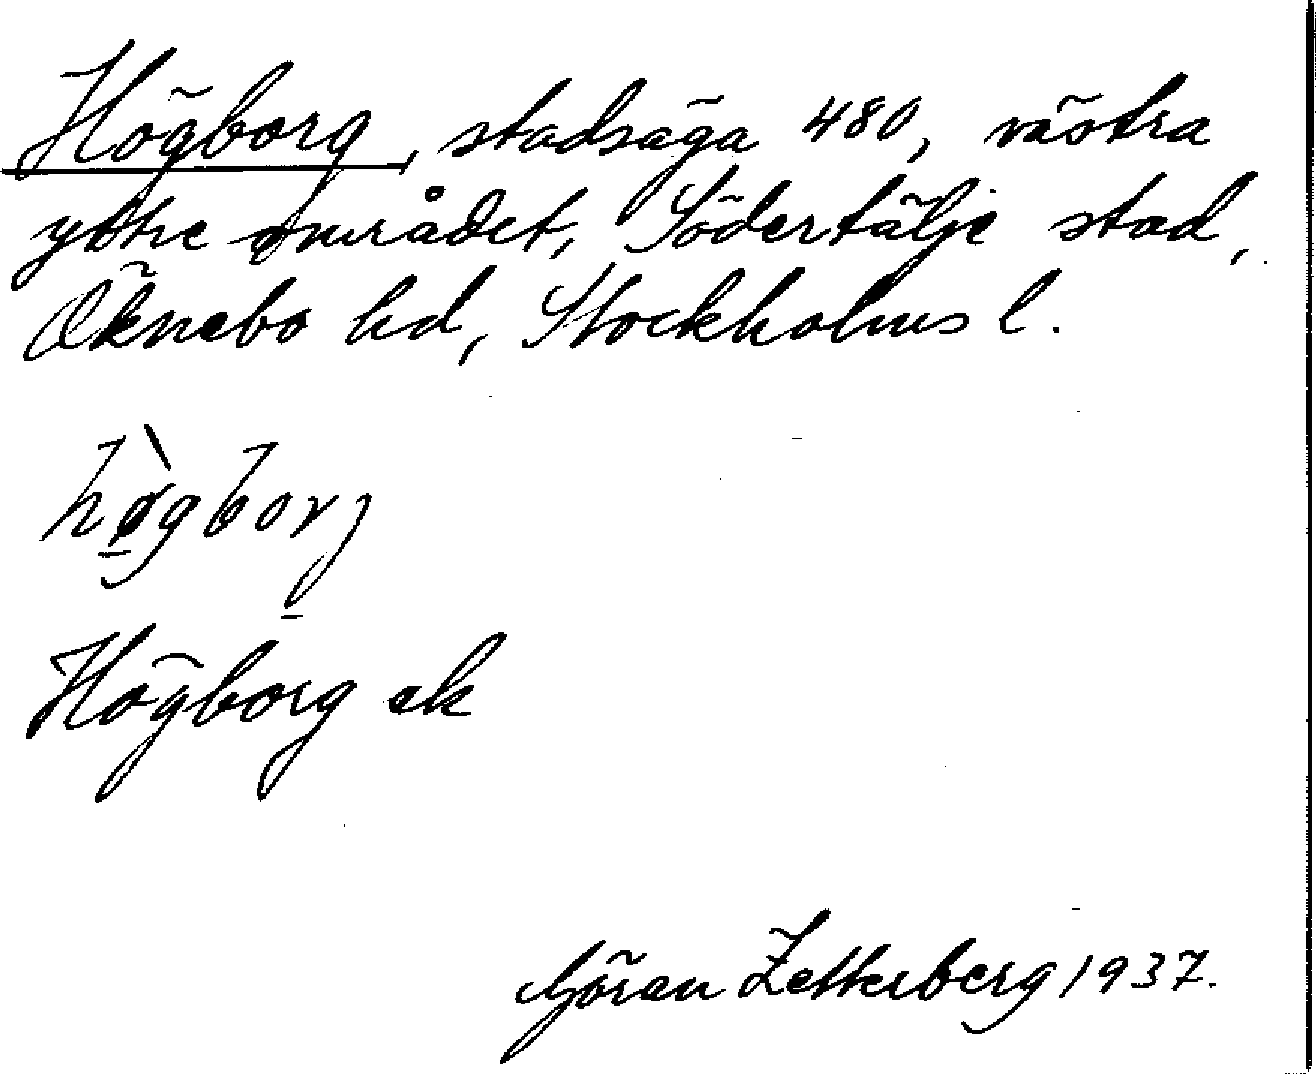 Högborg, stadsäga 480, västra
yttre området, Södertälje stad,
Öknebo hd, Stockholms l.
hø̀gborj
Högborg ek
Göran Zetterberg 1937.